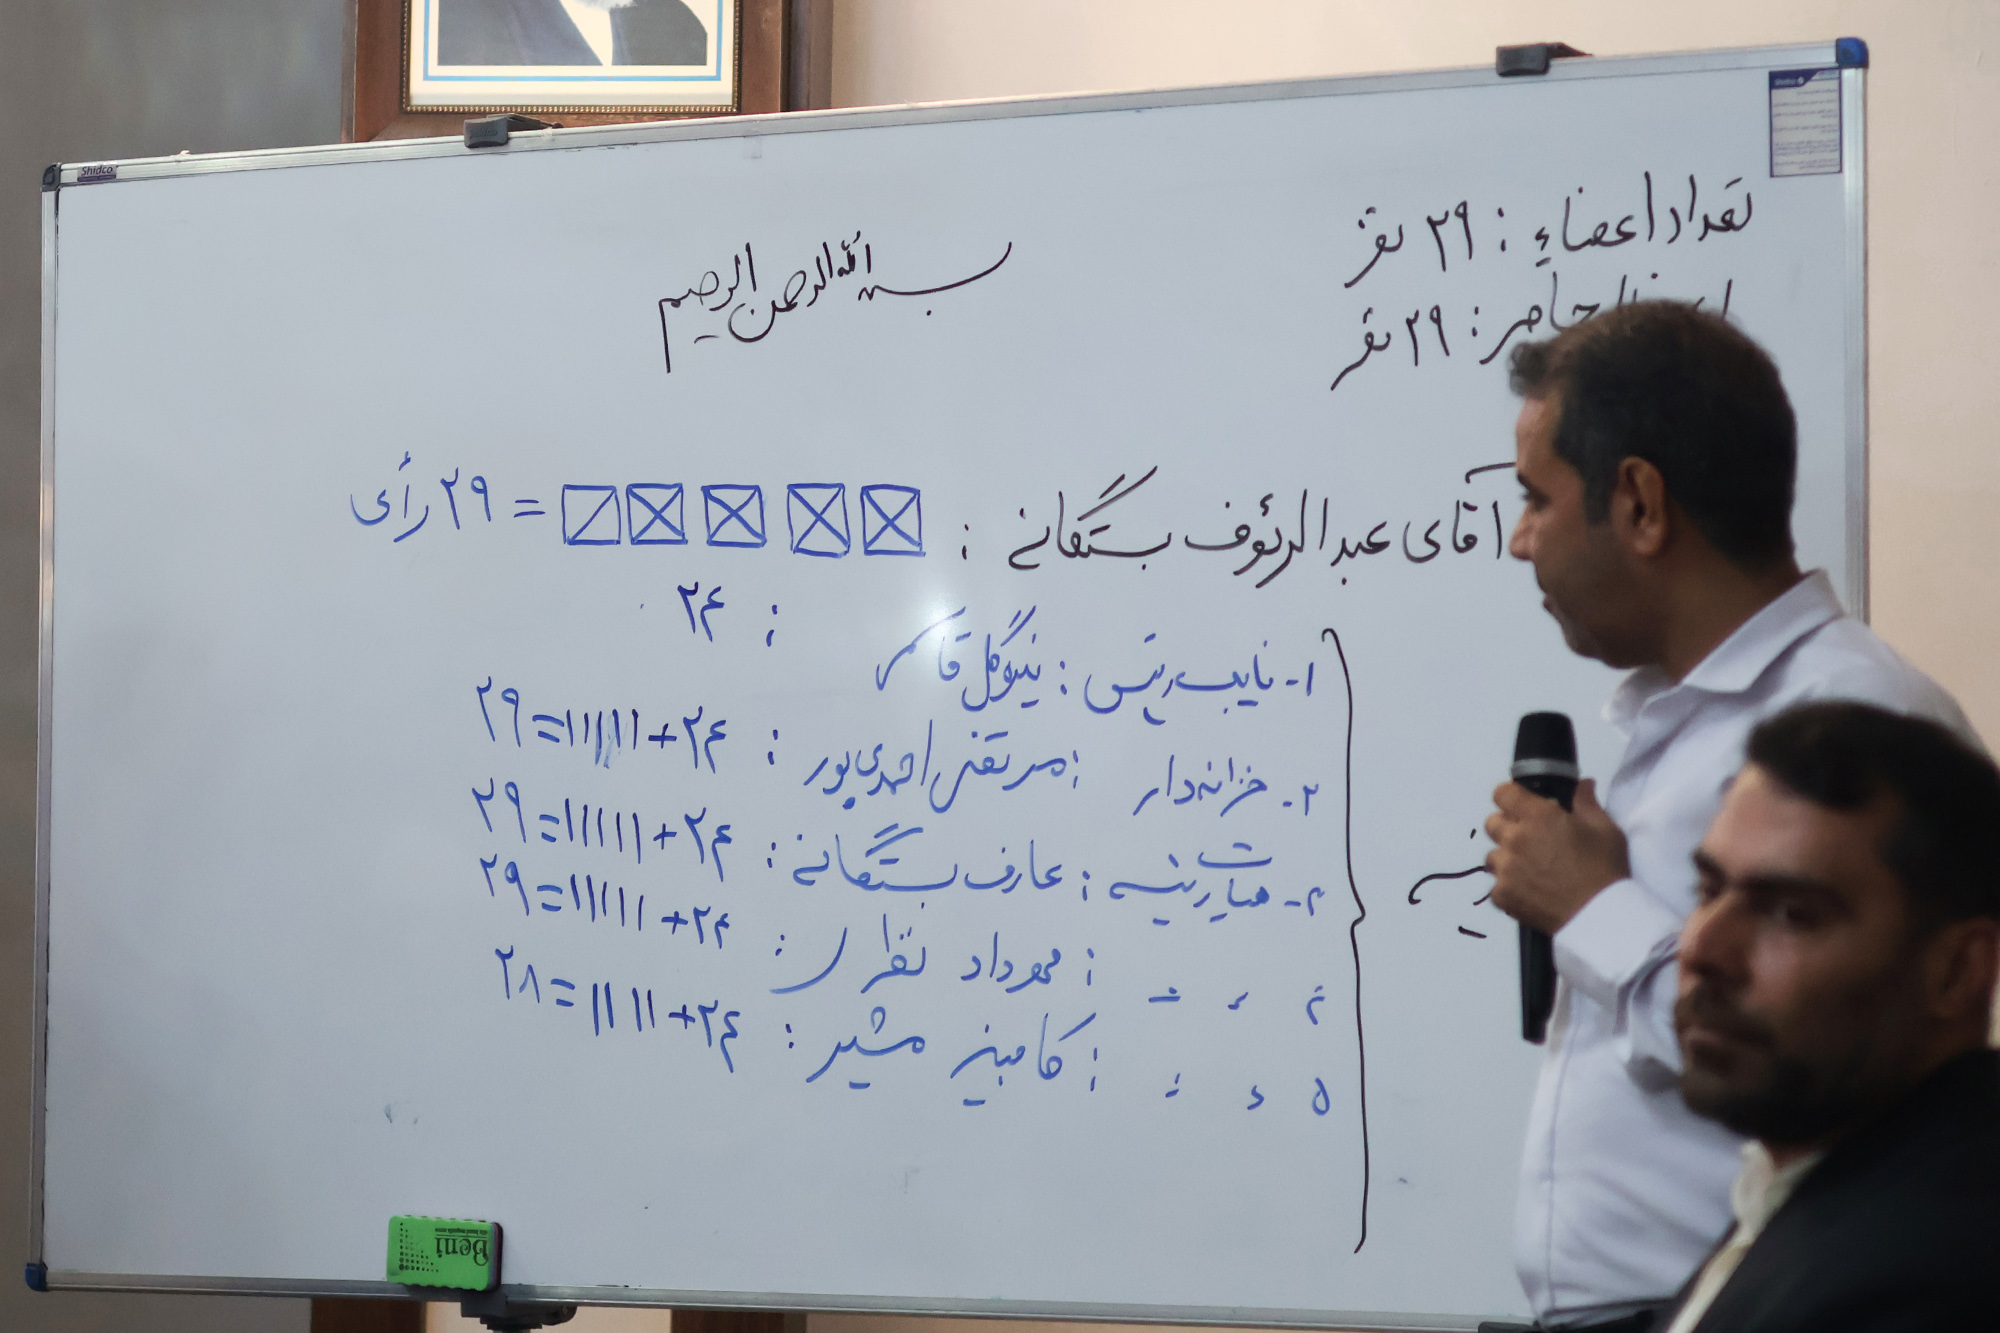 تعداد اعضاء : ۲۹ نفر
حاضر : ۲۹ نفر
بسم الله الرحمن الرحیم
آقای عبدالرئوف بستگانی : = ۲۹ رأی
۱- نایب رئیس : نیکوگل قاسمی : ۲۴
۲- خزانه‌دار : مرتضی احمدی‌پور : ۲۴ + ۱۱۱۱۱ = ۲۹
۳- هیات رئیسه : عارف بستگانی : ۲۴ + ۱۱۱۱۱ = ۲۹
۴ : مهرداد نظری : ۲۴ + ۱۱۱۱۱ = ۲۹
۵ : کامبیز مشیر : ۲۴ + ۱۱۱۱ = ۲۸
Shidco
Beni